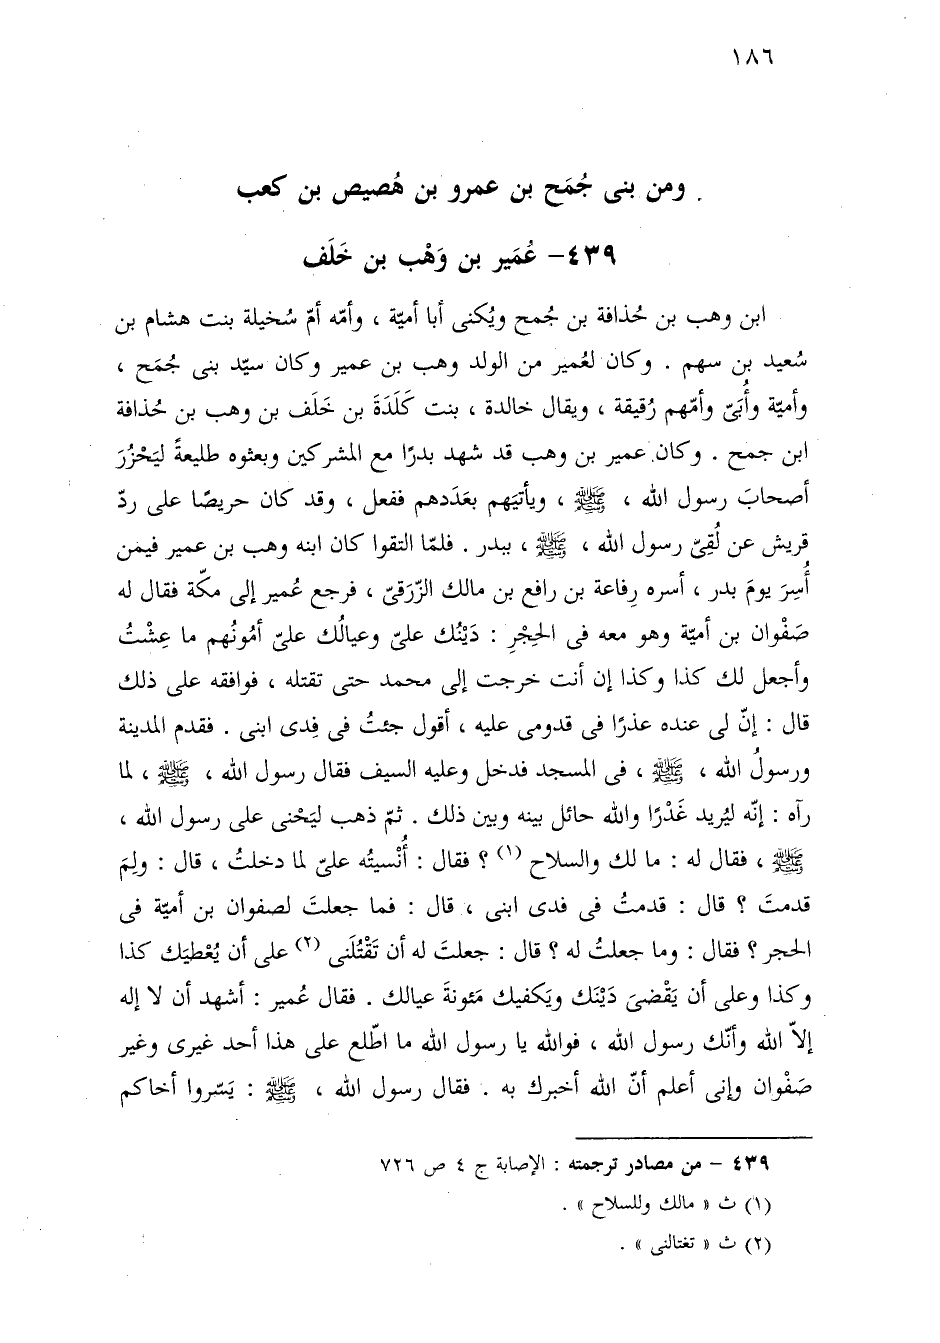 ١٨٦
ومن بنى جُمَح بن عمرو بن هُصيص بن كعب
٤٣٩– عُمَير بن وَهْب بن خَلَف
ابن وهب بن حُذافة بن جُمح ويُكنى أبا أميّة ، وأمّه أمّ سُخيلة بنت هشام بن
سُعيد بن سهم . وكان لعُمير من الولد وهب بن عمير وكان سيّد بنى جُمَح ،
وأميّة وأُبَىّ وأمّهم رُقيقة ، ويقال خالدة ، بنت كَلَدَة بن خَلَف بن وهب بن حُذافة
ابن جمح . وكان عمير بن وهب قد شهد بدرًا مع المشركين وبعثوه طليعةً ليَحْزُرَ
أصحابَ رسول الله ، ﷺ ، ويأتيَهم بعَدَدهم ففعل ، وقد كان حريصًا على ردّ
قريش عن لُقِىّ رسول الله ، ﷺ ، ببدر . فلمّا التقوا كان ابنه وهب بن عمير فيمن
أُسِرَ يومَ بدر ، أسره رِفاعة بن رافع بن مالك الزّرَقىّ ، فرجع عُمير إلى مكّة فقال له
صَفْوان بن أميّة وهو معه فى الحِجْرِ : دَيْنُك علىّ وعيالُك علىّ أمُونُهم ما عِشْتُ
وأجعل لك كذا وكذا إن أنت خرجت إلى محمد حتى تقتله ، فوافقه على ذلك
قال : إنّ لى عنده عذرًا فى قدومى عليه ، أقول جئتُ فى فِدى ابنى . فقدم المدينة
ورسولُ الله ، ﷺ ، فى المسجد فدخل وعليه السيف فقال رسول الله ، ﷺ ، لما
رآه : إنّه ليُريد غَدْرًا والله حائل بينه وبين ذلك . ثمّ ذهب ليَحْنى على رسول الله ،
ﷺ ، فقال له : ما لك والسلاح (١) ؟ فقال : أُنْسيتُه علىّ لما دخلتُ ، قال : ولِمَ
قدمتَ ؟ قال : قدمتُ فى فدى ابنى ، قال : فما جعلتَ لصفوان بن أميّة فى
الحجر ؟ فقال : وما جعلتُ له ؟ قال : جعلتَ له أن تَقْتُلَنى (٢) على أن يُعْطيَك كذا
وكذا وعلى أن يَقْضىَ دَيْنَك ويَكفيك مَئونةَ عيالك . فقال عُمير : أشهد أن لا إله
إلاّ الله وأنّك رسول الله ، فوالله يا رسول الله ما اطّلع على هذا أحد غيرى وغير
صَفْوان وإنى أعلم أنّ الله أخبرك به . فقال رسول الله ، ﷺ : يَسّروا أخاكم
٤٣٩ – من مصادر ترجمته : الإصابة ج ٤ ص ٧٢٦
(١) ث « مالك وللسلاح » .
(٢) ث « تغتالنى » .